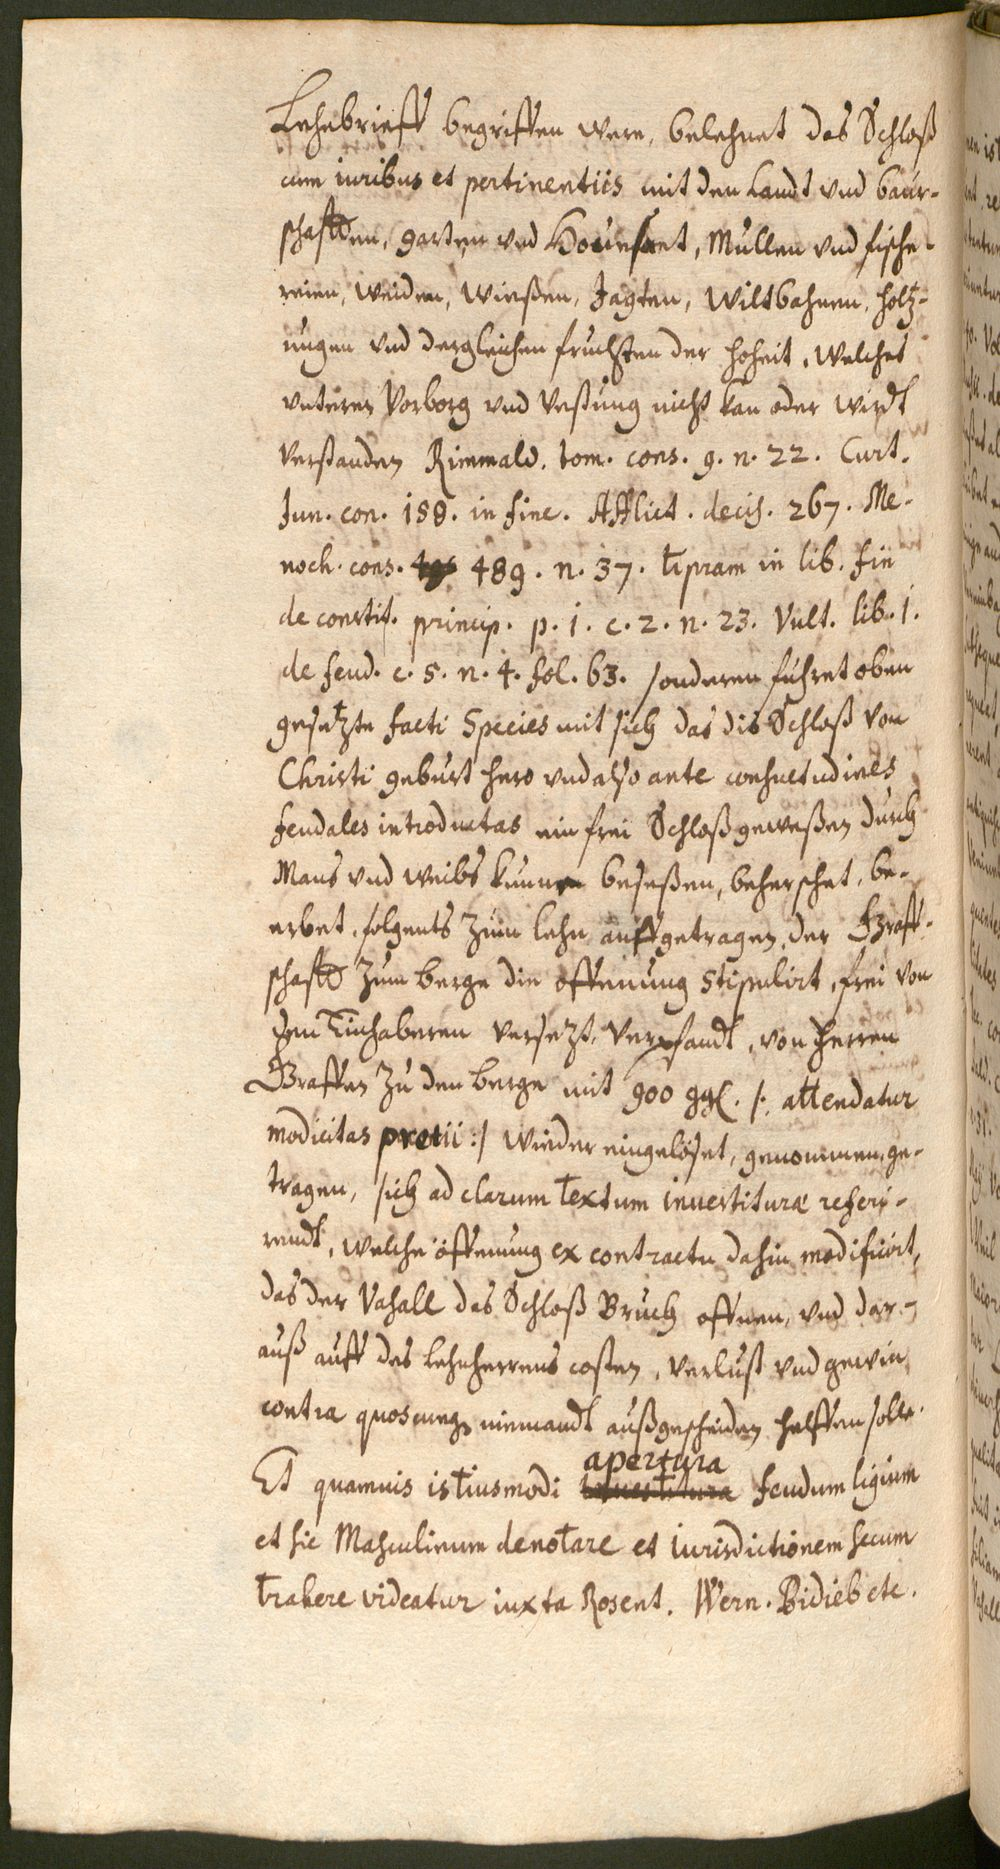 Lehnbrieff begriffen were, belehnet das Schloß
cum iuribus et pertinentiis mit den Landt vnd baur-
schafften, garten vnd Houesaet, Mullen vnd fische-
reien, weiden, wießen, Jagten, wiltbahnen, holtz-
ungen vnd dergleichen fruchten der hoheit, welches
vnteren Vorborg vnd Vestung nicht kan oder wirdt
verstanden Rimmald. tom. cons. 9. n. 22. Curt.
Jun. con. 158. in fine. Afflict. decis. 267. Me-
noch. cons. 489. n. 37. Tipram in lib. fin
de constit. princip. p. 1. c. 2. n. 23. Vult. lib. 1.
de feud. c. 5. n. 4. fol. 63. sonderen fuhret oben
gesetzte facti Species mit sich das dis Schloß von
Christi geburt hero vnd also ante consuetudines
feudales introductas ein frei Schloß geweßen durch
Mans vnd weibs kunne beseßen, beherschet, be-
erbet, folgents zum lehn auffgetragen, der Graff-
schafft zum berge die offenung stipulirt, frei von
den Einhaberen versezt, verpfandt, von Herren
Graffen zu den berge mit 900 ggl. /: attendatur
modicitas pretii :/ wieder eingelöset, genommen, ge-
tragen, sich ad clarum textum inuestituræ referi-
rendt, welche öffenung ex contractu dahin modificirt,
das der Vasall das Schloß Bruch offnen, vnd dar-
auß auff des lehnherrens costen, verlust vnd gewin
contra quoscunq niemandt außgescheiden helffen solle.
apertura
Et quamuis istiusmodi inuestitura feudum ligium
et sic Masculinum denotare et iurisdictionem secum
trahere videatur iuxta Rosent. Wern. Bidieb etc.